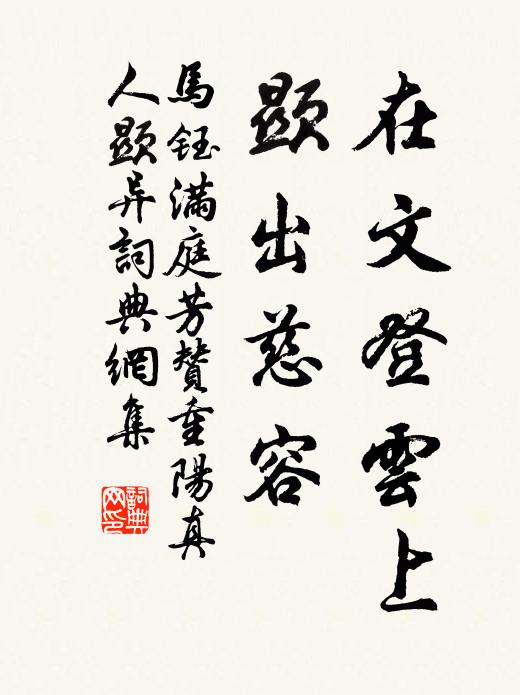 在文登雲上
顯出慈容
馬鈺滿庭芳贊重陽真
人顯异詞典網集
詞典
网印